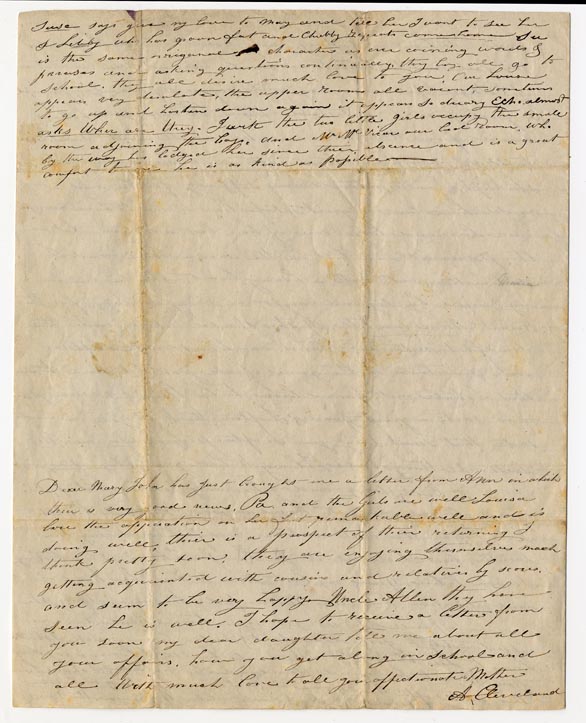 Susee says give my love to Mary and tell her I want to see her
& Libby who has grown fat and Chubby
is the same original Character as ever coining words &
phrases and asking questions continually, they boy all go to
school. they all desire much love to you, Our house
appears very desolate, the upper rooms all vacant, sometimes
to go up and listen down again it appears so dreary Echo almost
asks Where are they. I with the two little girls occupy the small
room adjoining the boys, and Mr Mc our bed room, who
by the way has lodged here since their absence and is a great
comfort to he is as kind as possible
Dear Mary John has just brought me a letter from Ann in which
their is very good news. Pa and the Girls are well Louisa
bore the opperation on her foot remarkable well and is
doing well, their is a prospect of their returning I
think pretty soon. they are enjoying themselves much
getting acquainted with cousins and relatives by scores.
and seem to be very happy Uncle Allen they have
seen he is well. I hope to receive a letter from
you soon my dear daughter tell me about all
your affairs, how you get along in School and
all With much love to all your affectionate Mother
A Cleveland